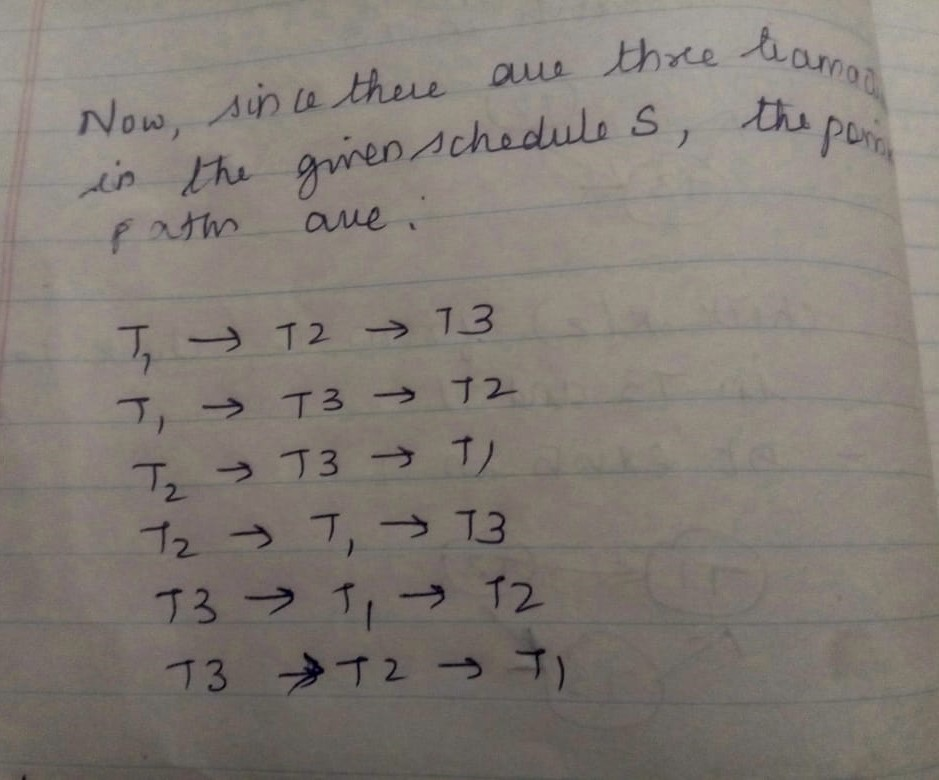 Now, since there are three
in the given schedule S, the
paths are:
T1 → T2 → T3
T1 → T3 → T2
T2 → T3 → T1
T2 → T1 → T3
T3 → T1 → T2
T3 → T2 → T1